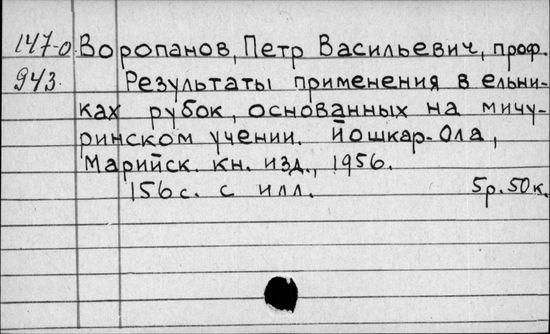 147-0 Воропанов, Петр Васильевич, проф.
943. Результаты применения в ельни-
ках рубок, основанных на мичу-
ринском учении. Йошкар-Ола,
Марийск. кн. изд., 1956.
156с. с илл. 5р.50к.